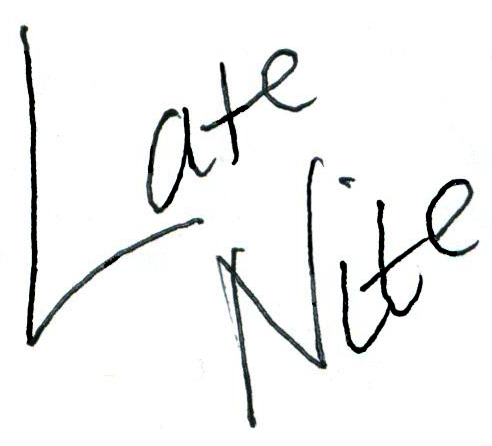 Late
Nite